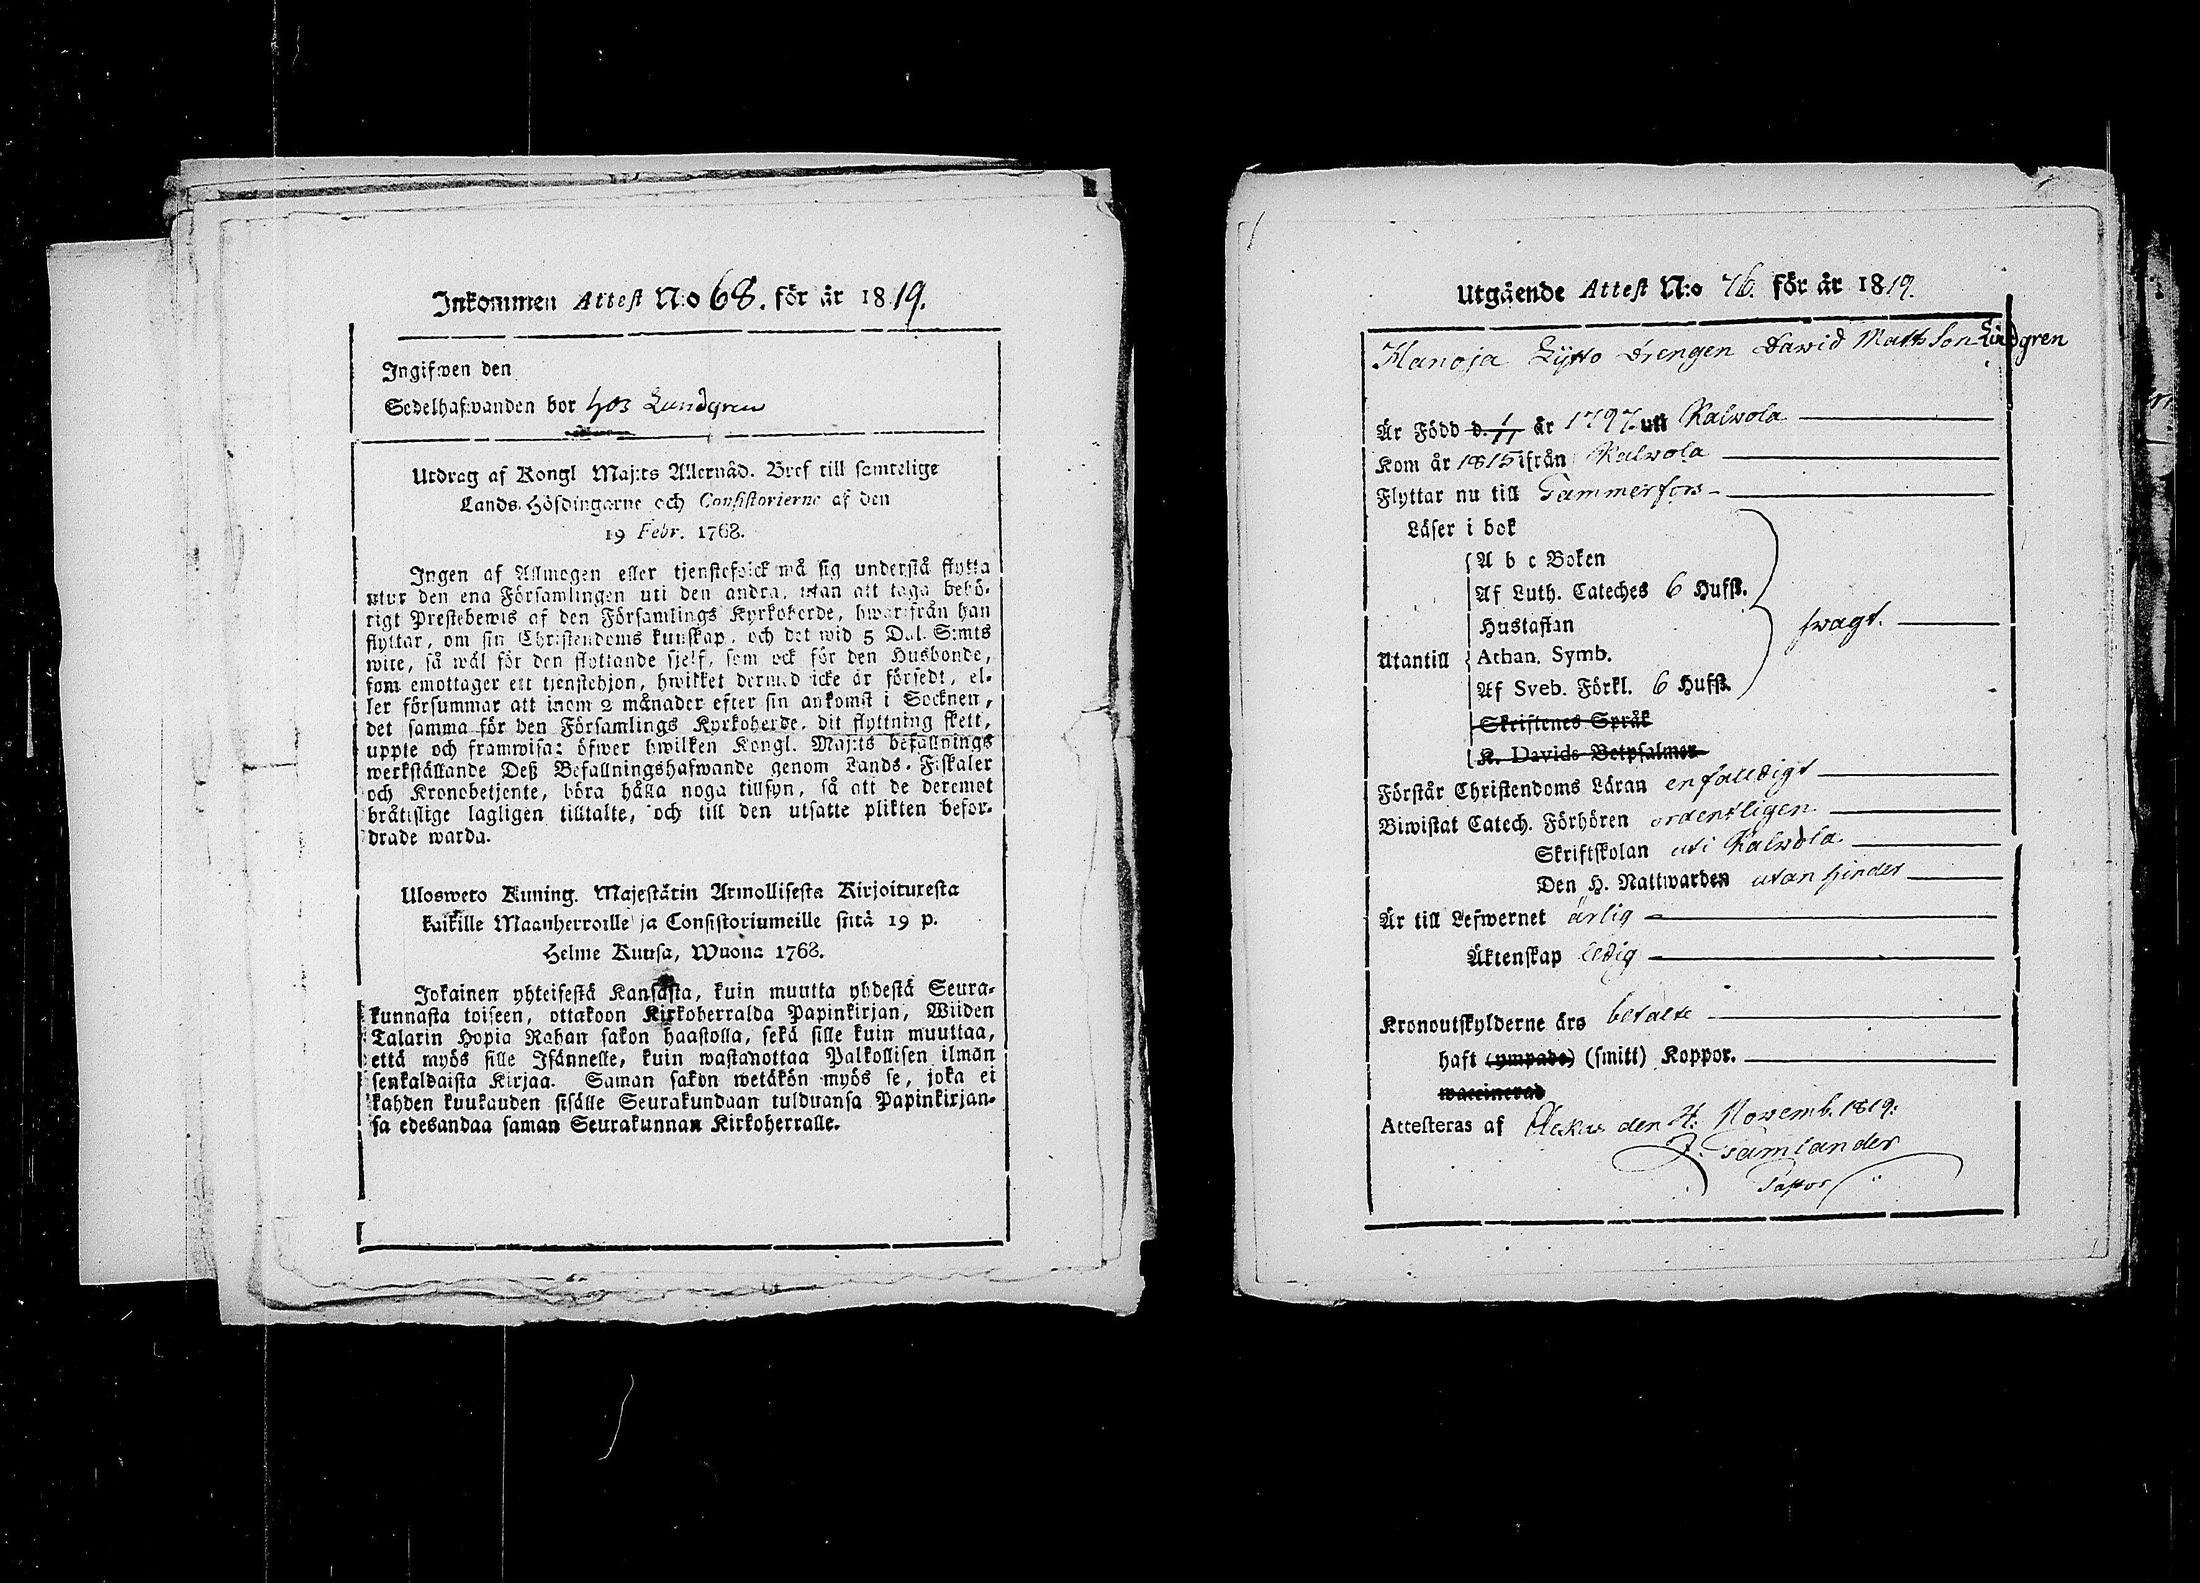 Inkommen Attest N:o 68. för år 1819.
Ingifwen den
Sedelhafwanden bor hos Lundgren
Utdrag af Kongl Maj:ts Allernåd. Bref till samtelige
Lands-Höfdingarne och Consistorierne af den
19 Febr. 1768.
Ingen af Allmogen eller tjenstefolck må sig understå flytta
utur den ena Församlingen uti den andra, utan att taga behö-
rigt Prestebewis af den Församlings Kyrkoherde, hwarifrån han
flyttar, om sin Christendoms kunskap, och det wid 5 Dal. S:mts
wite, så wäl för den flyttande sjelf, som ock för den Husbonde,
som emottager ett tjenstehjon, hwilket dermed icke är försedt, el-
ler försummar att inom 2 månader efter sin ankomst i Socknen,
det samma för den Församlings Kyrkoherde, dit flyttning skett,
uppte och framwisa: öfwer hwilken Kongl. Maj:ts befallnings
werkställande Deß Befallningshafwande genom Lands-Fiskaler
och Kronobetjente, böra hålla noga tillsyn, så att de deremot
bråtislige lagligen tilltalte, och till den utsatte plikten befor-
drade warda.
Ulosweto Kuning. Majestätin Armollisesta Kirjoituxesta
kaikille Maanherroille ja Consistoriumeille siitä 19 p.
Helme Kuusa, Wuona 1768.
Jokainen yhteisestä Kansasta, kuin muutta yhdestä Seura-
kunnasta toiseen, ottakoon Kirkoherralda Papinkirjan, Wiiden
Talarin Hopia Rahan sakon haastolla, sekä sille kuin muuttaa,
että myös sille Isännelle, kuin wastanottaa Palkollisen ilman
senkaldaista Kirjaa. Saman sakon wetäkön myös se, joka ei
kahden kuukauden sisälle Seurakundaan tulduansa Papinkirjan-
sa edesandaa saman Seurakunnan Kirkoherralle.
Utgående Attest N:o 76. för år 1819.
Hanoja Lytto drengen Dawid Matts Son Lindgren
Är Född d. 1/11 år 1797. uti Kalwola
Kom år 1815 ifrån Kalwola
Flyttar nu till Tammerfors
Läser i bok
A b c Boken
Af Luth. Cateches 6 Hufst.
Hustaflan
swagt.
Utantill Athan. Symb.
Af Sveb. Förkl. 6 Hufst.
Skriftenes Språk
K. Davids Betpsalmer
Förstår Christendoms Läran enfaldigt
Biwistat Catech. Förhören ordentligen
Skriftskolan uti Kalwola
Den H. Nattwarden utan hinder
Är till Lefwernet ärlig
Äktenskap ledig
Kronoutskylderne äro betalte
haft (ympade) (smitt) Koppor.
waccinerad
Attesteras af Akkas den 4. Novemb. 1819.
J. Tamlander
Pastor